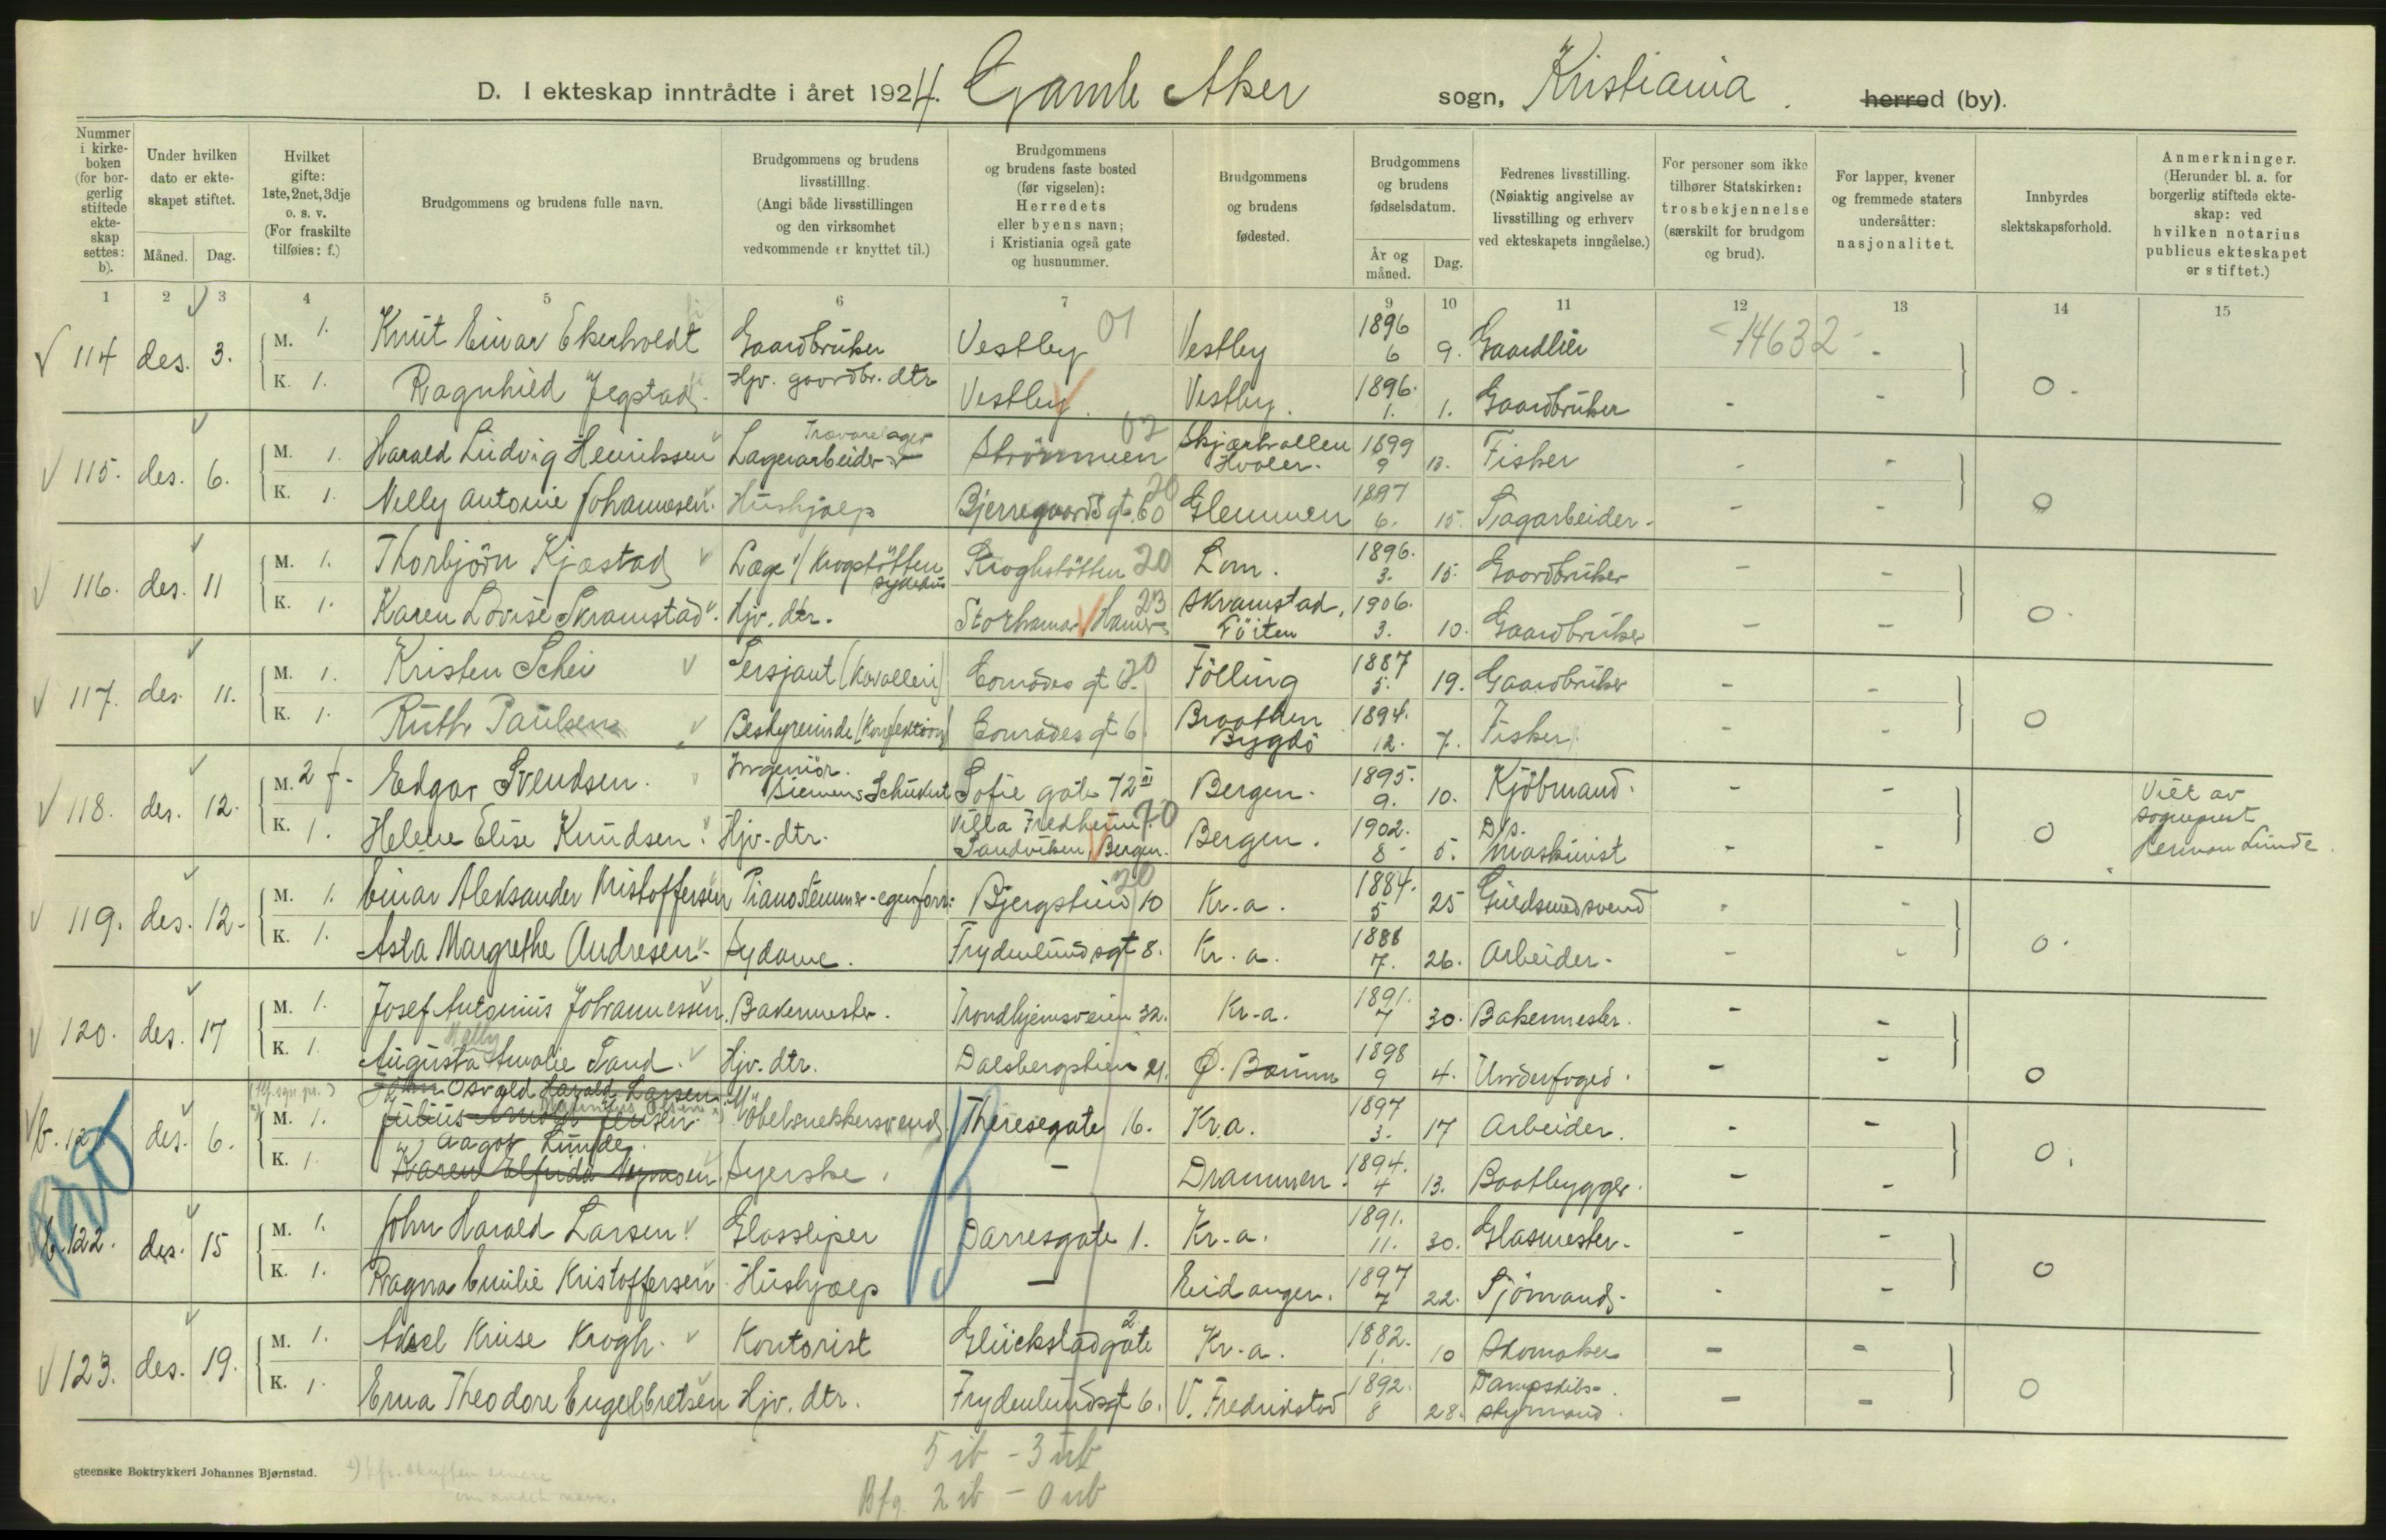 D. I ekteskap inntrådte i året 1924. Gamle Aker sogn, Kristiania. herred (by).
Nummer i kirkeboken (for borgerlig stiftede ekteskap settes: b).
Under hvilken dato er ekteskapet stiftet.
Måned. Dag.
Hvilket gifte: 1ste, 2net, 3dje o. s. v. (For fraskilte tilføies: f.)
Brudgommens og brudens fulle navn.
Brudgommens og brudens livsstillIng. (Angi både livsstillingen og den virksomhet vedkommende er knyttet til.)
Brudgommens og brudens faste bosted (før vigselen): Herredets eller byens navn; i Kristiania også gate og husnummer.
Brudgommens og brudens fødested.
Brudgommens og brudens fødselsdatum.
År og måned. Dag.
Fedrenes livsstilling. (Nøiaktig angivelse av livsstilling og erhverv ved ekteskapets inngåelse.)
For personer som ikke tilhører Statskirken: trosbekjennelse (særskilt for brudgom og brud).
For lapper, kvener og fremmede staters undersåtter: nasjonalitet.
Innbyrdes slektskapsforhold.
Anmerkninger. (Herunder bl. a. for borgerlig stiftede ekteskap: ved hvilken notarius publicus ekteskapet er stiftet.)
1 2 3 4 5 6 7 9 10 11 12 13 14 15
114 des. 3. M. 1. Knut Einar Ekerholdt Gaardbruker Vestby 01 Vestby 1896 6 9. Gaardbruker 14632 -
K. 1. Ragnhild Jegstad. Hjv. gaardbr. dtr Vestby. Vestby. 1896. 1. 1. Gaardbruker - - 0 -
115. des. 6. M. 1. Harald Ludvig Henriksen Lagerarbeider Trævarelager Strömmen 02 Skjærhallen Hvaler. 1899 9 Fisker - -
K. 1. Nelly Antonie Johannesen. Hushjælp Bjerregaards gt. 60 20 Glemmen 1897 6. 15. Sagarbeider - - - 0
116. des. 11 M. 1. Thorbjörn Kjæstad Læge v/ Krogstötten sykehus Kroghstötten 20 Lom. 1896. 3. 15. Gaardbruker - -
K. 1. Karen Lovise Skramstad. Hjv. dtr. Storhamar Hamar 23 Skramstad, Löiten 1906. 3. 10. Gaardbruker - - 0 -
117. des. 11. M. 1. Kristen Schei Sersjant (Kavalleri) Eområdes gt 6. 20 Fölling 1887 5. 19. Gaardbruker - -
K. 1. Ruth Paulsen Bestyrerinde (Konfektion) Eområdes gt 6. Braathen Bygdö 1894. 12. 7. Fisker - - 0
118. des. 12. M. 2 f - Edgar Svendsen. Ingeniör. Siemens Schukert Sofie gate 72 III Bergen. 1895. 9. 10. Kjöbmand. - - Viet av sogneprest Herman Lunde.
K. 1. Helene Elise Knudsen. Hjv. dtr. Villa Fredheim 20 Sandviken, Bergen. Bergen. 1902. 8 5. D/s. Maskinist - - 0
119. des. 12 - M. 1. Einar Aleksander Kristoffersen Pianostemmer - egen forr. Bjergstien 10 20 Kr.a. 1884. 5 25 Guldsmedsvend - -
K. 1. Asta Margrethe Andresen - Sydame. Frydenlundsgt 8. Kr.a. 1888 7. 26. Arbeider - - - 0.
120. des. 17 M. 1. Josef Antonius Johannessen. Bakermester. Trondhjemsveien 32. Kr.a. 1891. 7 30. Bakermester. - -
K. 1. Augusta Nelly Amalie Sand. Hjv. dtr. Dalsbergstien 21. Ø. Bærum 1898 9 4. Underfoged. - - 0
b. 121 des. 6. M. 1. John Osvald Harald Larsen Julius Arnold Jensen Möbelsnekkersvend Theresegate 16. Kr.a. 1897 3. 17 Arbeider. - -
K. 1. Aagot Lunde Karen Elfrida Syerske. - Drammen. 1894. 4 13. Baatbygger. - - 0.
b. 122. des. 15 M. 1. John Harald Larsen Glassliper Darresgate 1. Kr.a. 1891. 11. 30. Glasmester. - -
K. 1. Ragna Emilie Kristoffersen Hushjælp - Eidanger. 1897 7 22. Sjömand. - - 0
123. des. 19. M. 1. Aksel Kruse Krogh. Kontorist Glückstadgate 2 Kr.a. 1882. 1. 10 Skomaker - -
K. 1. Erna Theodore Engelbretsen Hjv. dtr. Frydenlundsgt 6. V. Fredrikstad 1892. 8 28. Dampskibsstyrmand. - - 0
5 ib - 3 ub
Bfg. 2 ib - 0 ub
gteenske Boktrykkeri Johannes Bjørnstad.